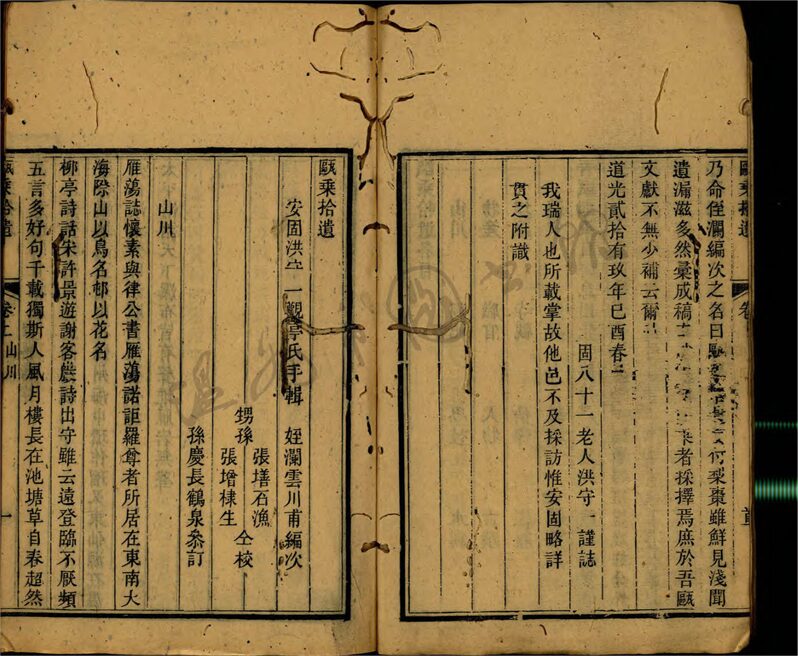 乃命侄瀾編次之名曰甌乘拾遺梨棗雖鮮見淺聞
遺漏滋多然彙成稿采者採擇焉庶於吾甌
文獻不無少補云爾
道光貳拾有玖年己酉春
固八十一老人洪守一謹誌
我瑞人也所載掌故他邑不及採訪惟安固略詳
貫之附識
甌乘拾遺
安固洪守一觀亭氏手輯 姪瀾雲川甫編次
甥孫 張墡石漁 仝校
張增棣生
孫慶長鶴泉叅訂
山川
雁蕩誌懷素與律公書雁蕩諾詎羅尊者所居在東南大
海際山以鳥名邨以花名
柳亭詩話宋許景遊謝客巖詩出守雖云遠登臨不厭頻
五言多好句千載獨斯人風月樓長在池塘草自春超然
甌乘拾遺 卷上 山川 一